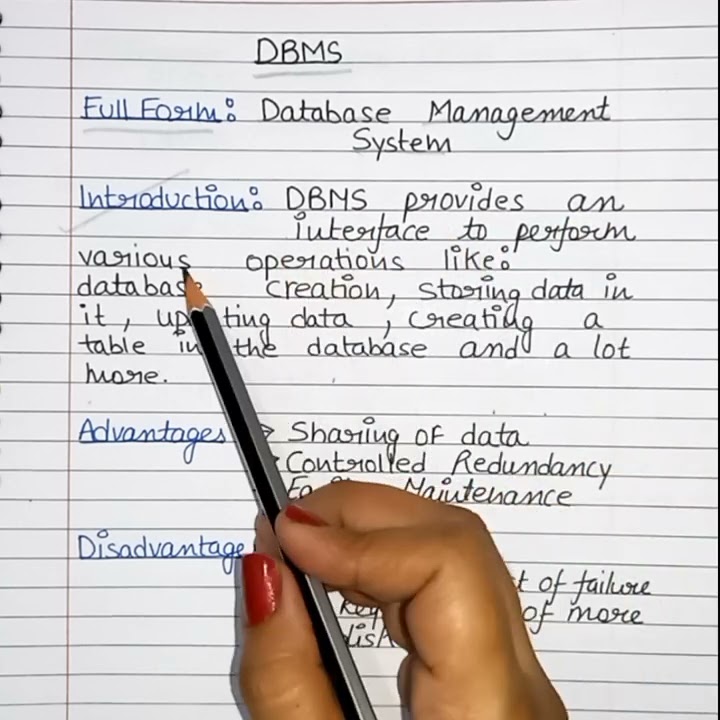 DBMS
Full Form: Database Management
System
Introduction: DBMS provides an
interface to perform
various operations like:
database creation, storing data in
it, updating data, creating a
table in the database and a lot
more.
Advantages Sharing of data
Controlled Redundancy
Maintenance
Disadvantage
of failure
of more